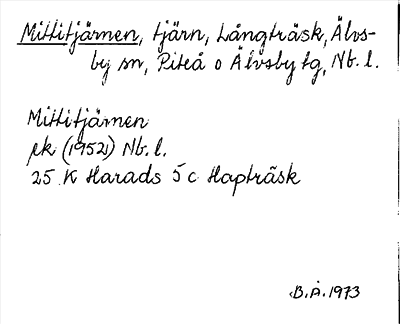 Mittitjärnen, tjärn, Långträsk, Älvs-
by sn, Piteå o Älvsby tg, Nb. l.
Mittitjärnen
ek (1952) Nb. l.
25 K Harads 5 c Hapträsk
B.Å. 1973